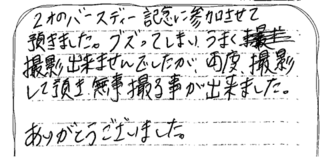 2才のバースディー記念に参加させて
頂きました。グズってしまいうまく
撮影出来ませんでしたが、再度、撮影
して頂き、無事撮る事が出来ました。
ありがとうございました。